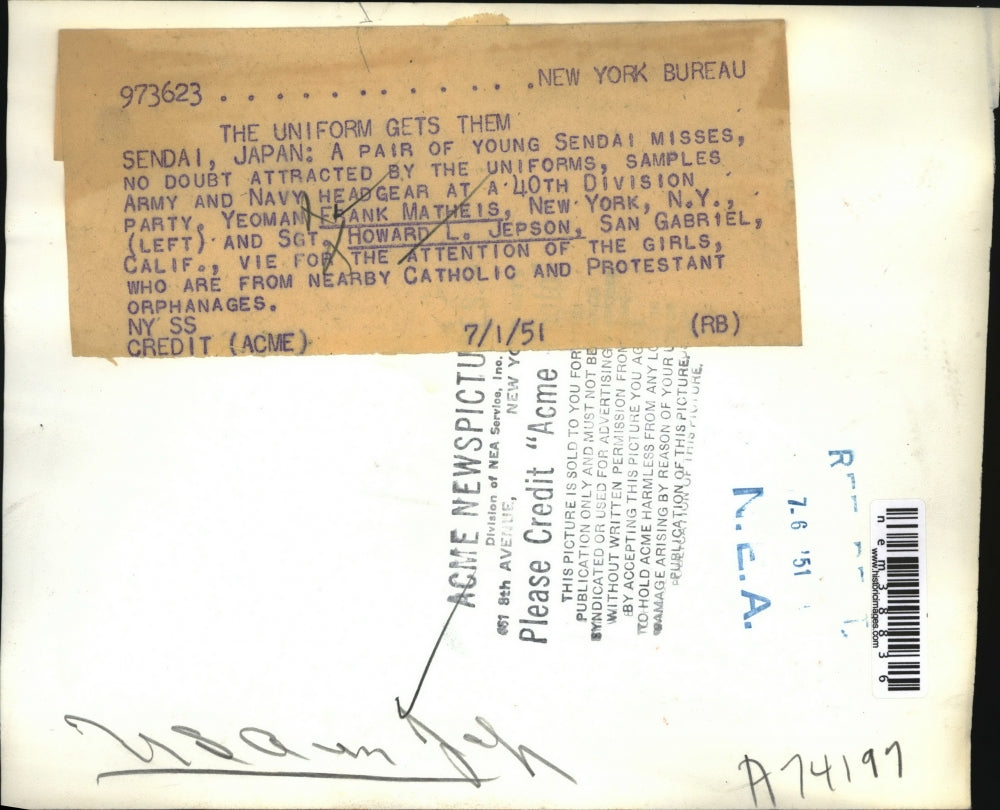 973623 . . . . . . . . . . . . .NEW YORK BUREAU
THE UNIFORM GETS THEM
SENDAI, JAPAN: A PAIR OF YOUNG SENDAI MISSES,
NO DOUBT ATTRACTED BY THE UNIFORMS, SAMPLES
ARMY AND NAVY HEADGEAR AT A 40TH DIVISION
PARTY, YEOMAN FRANK MATHEIS, NEW YORK, N.Y.,
(LEFT) AND SGT. HOWARD L. JEPSON, SAN GABRIEL,
CALIF., VIE FOR THE ATTENTION OF THE GIRLS,
WHO ARE FROM NEARBY CATHOLIC AND PROTESTANT
ORPHANAGES.
NY SS
CREDIT (ACME) 7/1/51 (RB)
ACME NEWSPICTU
Division of NEA Service, Inc.
461 8th AVENUE, NEW YO
Please Credit "Acme
THIS PICTURE IS SOLD TO YOU FOR
PUBLICATION ONLY AND MUST NOT BE
SYNDICATED OR USED FOR ADVERTISING
WITHOUT WRITTEN PERMISSION FROM
BY ACCEPTING THIS PICTURE YOU AG
TO HOLD ACME HARMLESS FROM ANY LO
DAMAGE ARISING BY REASON OF YOUR U
PUBLICATION OF THIS PICTURE.
N.E.A.
7-6 '51
www.historicimages.com
nem38836
USA in Jap
A74197